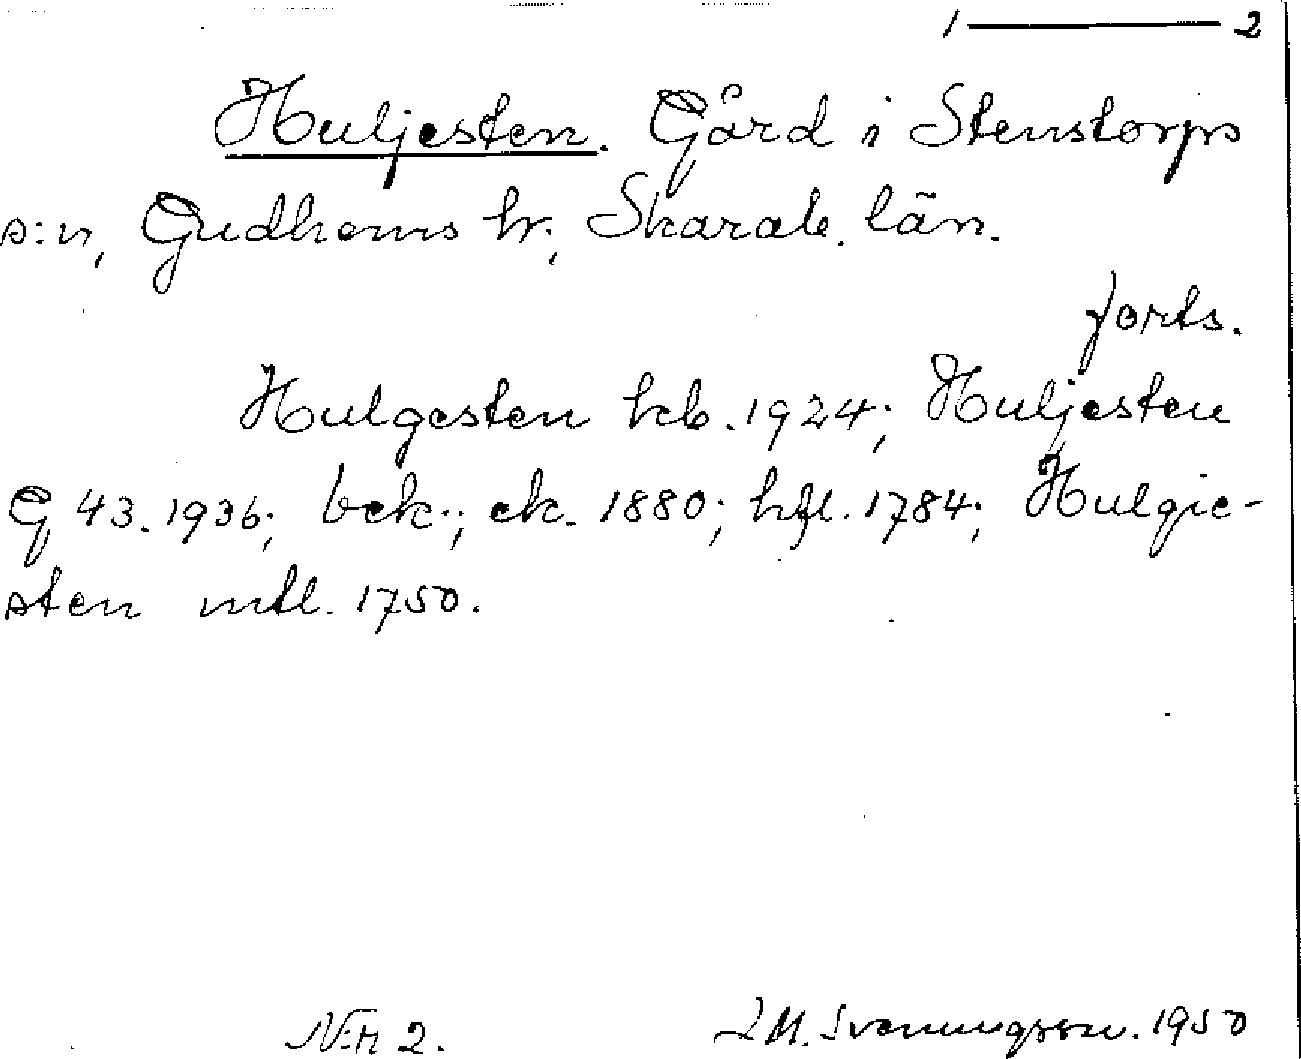 1 — 2
Huljesten. Gård i Stenstorps
s:n, Gudhems hr, Skarab. län.
forts.
Hulgesten hcb. 1924; Huljesten
G 43. 1936; bek.; ek. 1880; hfl. 1784; Hulgie-
sten mtl. 1750.
N:r 2. M. Svenungsson. 1950